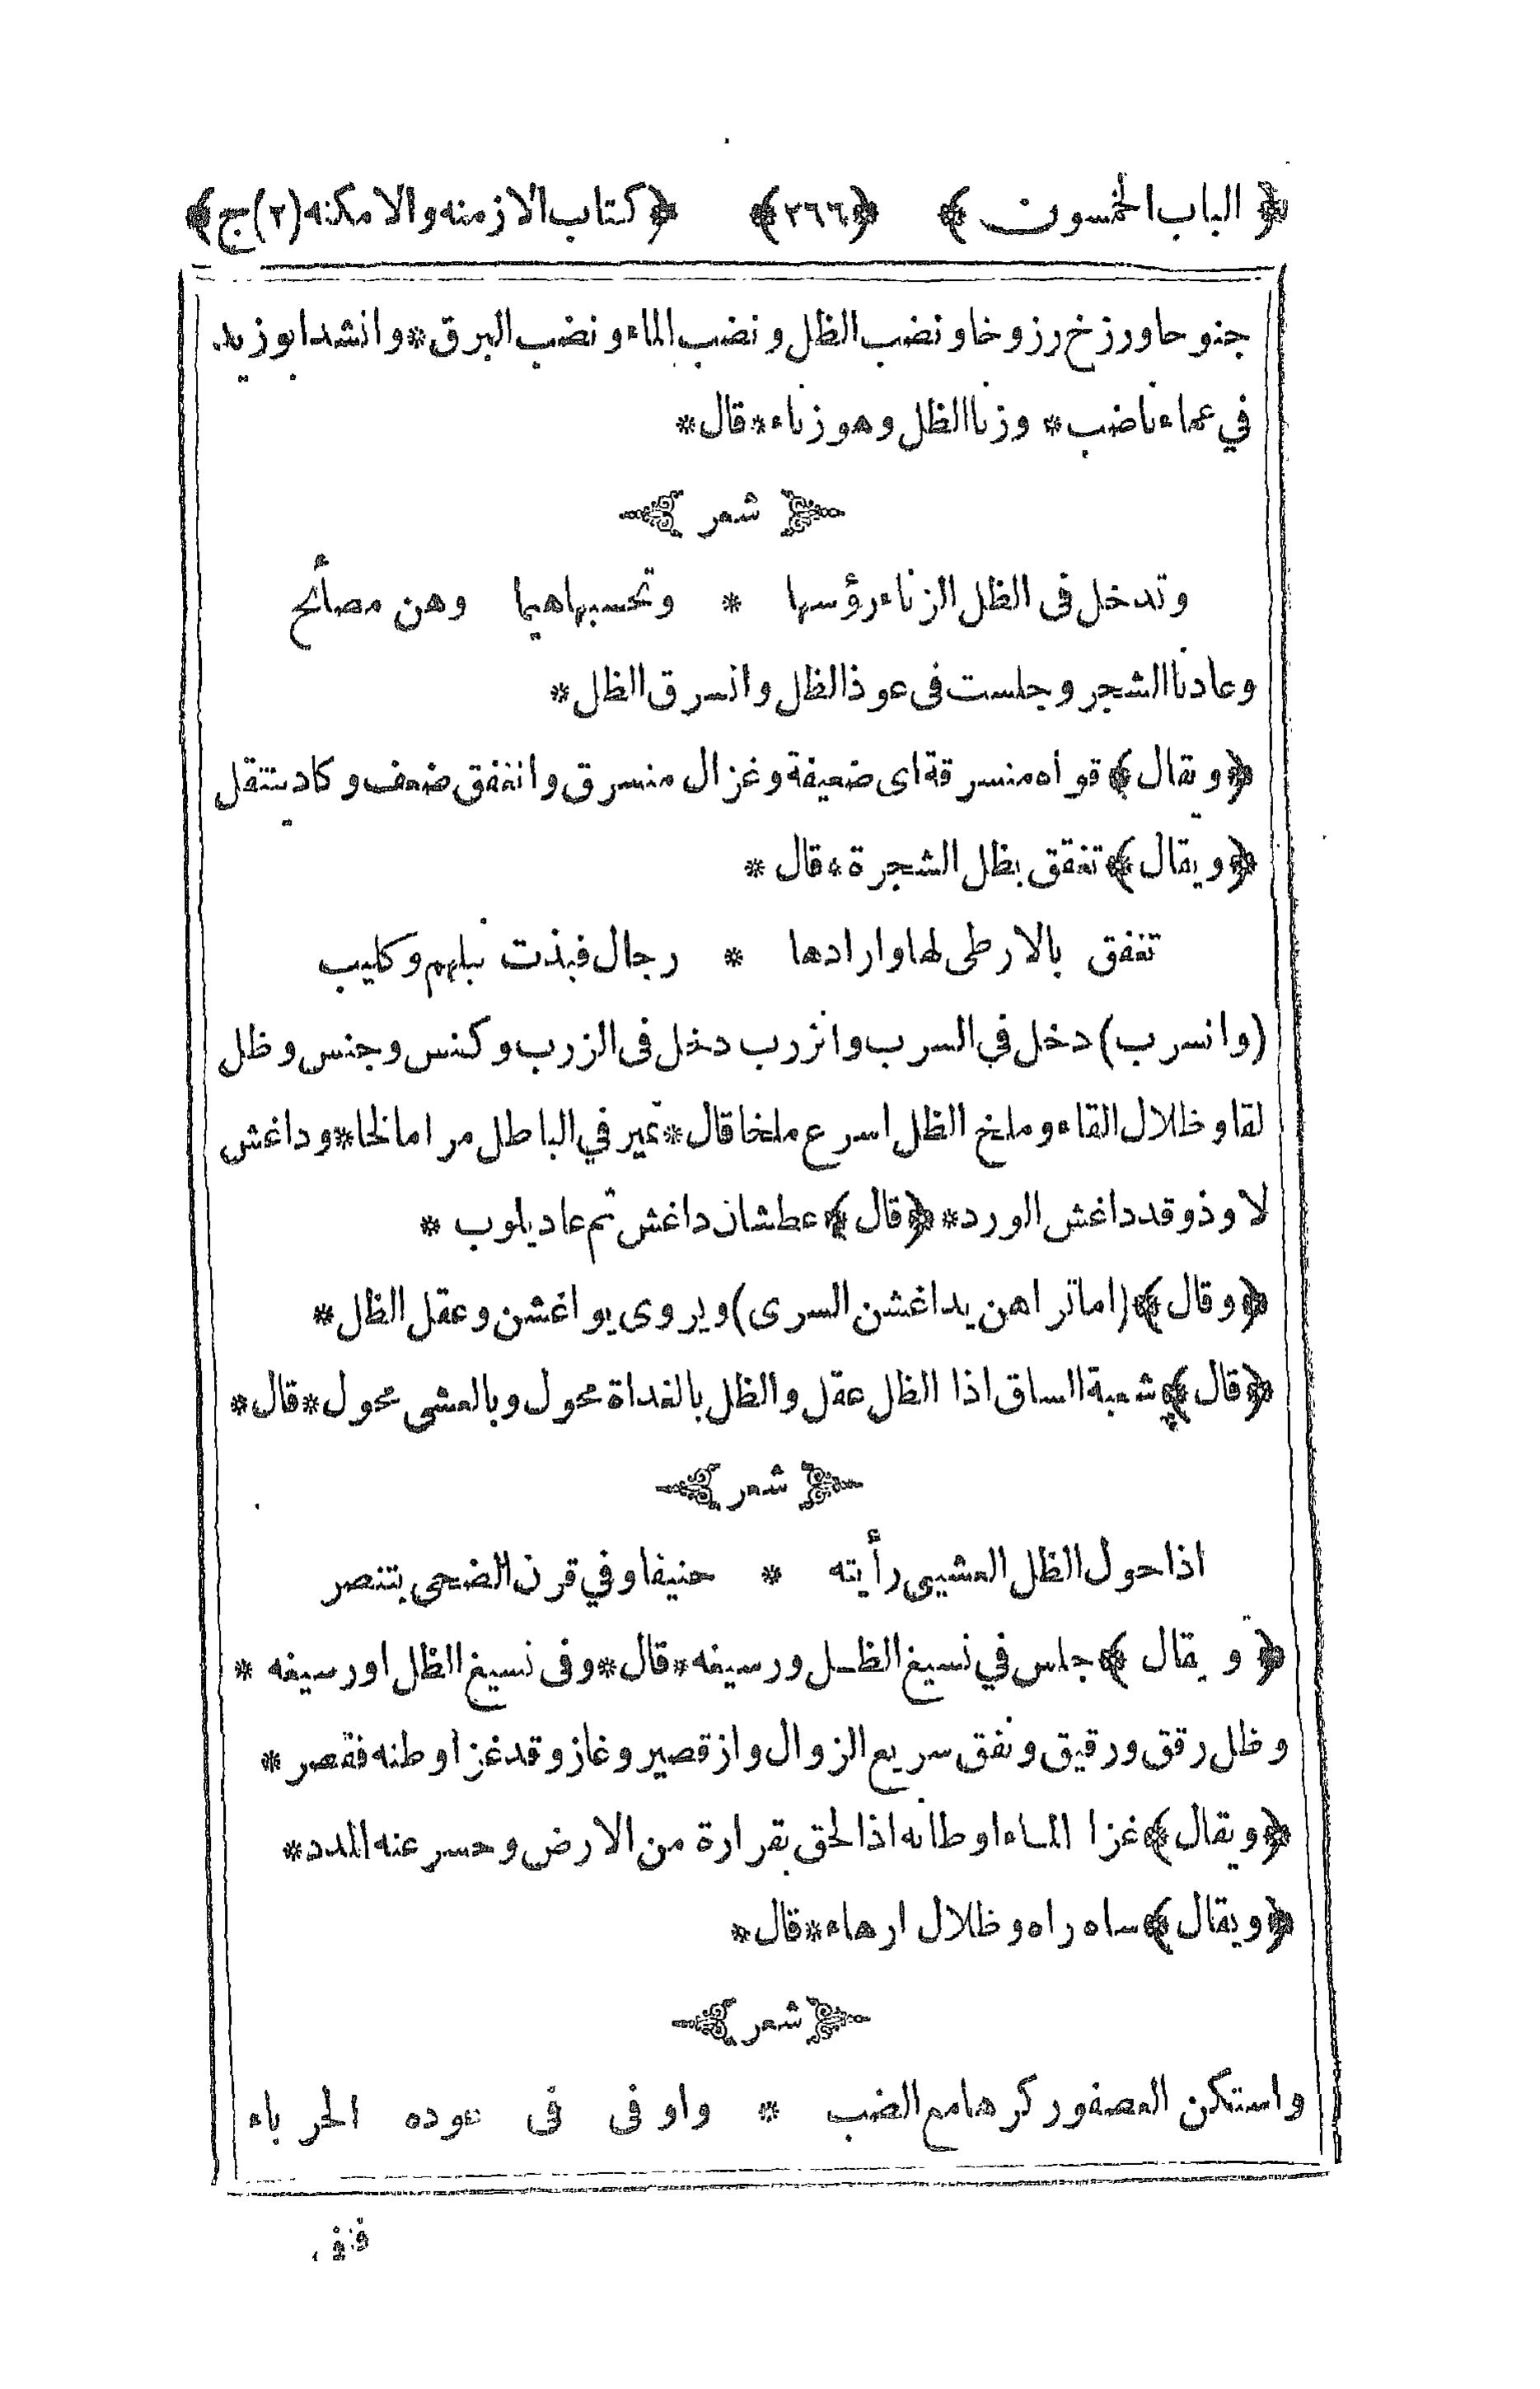 ﴿ الباب الخمسون ﴾ ﴿٢٦٦﴾ ﴿كتاب الازمنه والامكنه (٢) ج﴾
جنوحا ورزخ رزوخا ونضب الظل ونضب الماء ونضب البرق * وانشد ابوزيد.
في عماء ناضب * وزنا الظل وهو زناء * قال *
شعر
وتدخل فى الظل الزناء رؤسها * وتحسبها هيما وهن مصائح
وعادنا الشجر وجلست فى عوذ الظل وانسرق الظل *
﴿ويقال﴾ قواه منسرقة اى ضعيفة وغزال منسرق وانفق ضعف وكاد ينتقل
﴿ويقال﴾ تفقق بظل الشجرة * قال *
تنفق بالارطى لها وارادها * رجال فبذت نبلهم وكليب
(وانسرب) دخل في السرب وانزرب دخل فى الزرب وكنس وجنس وظل
لقا وظلال القاء وملخ الظل اسرع ملخا قال * غير في الباطل مراما لخا * وداغش
لاوذ وقد داغش الورد * ﴿قال﴾ عطشان داغش ثم عاد يلوب *
﴿وقال﴾ (اما تراهن يداغشن السرى) ويروى يواغشن وعقل الظل *
﴿قال﴾ شعبة الساق اذا الظل عقل والظل بالغداة محول وبالعشى محول * قال *
شعر
اذا حول الظل العشيى رأيته * حنيفا وفي قرن الضحى يتنصر
﴿ويقال﴾ جلس في نسيغ الظل ورسيغه * قال * وفى نسيغ الظل او رسيغه *
وظل رقق ورقيق ونفق سريع الزوال وازقصير وغاز وقد غزا وطنه فقصر *
﴿ويقال﴾ غزا الماء اوطانه اذا لحق بقرارة من الارض وحسر عنه المدد *
﴿ويقال﴾ ساه راه وظلال ارهاء * قال *
شعر
واستكن العصفور كرها مع الضب * واوفى فى عوده الحرباء